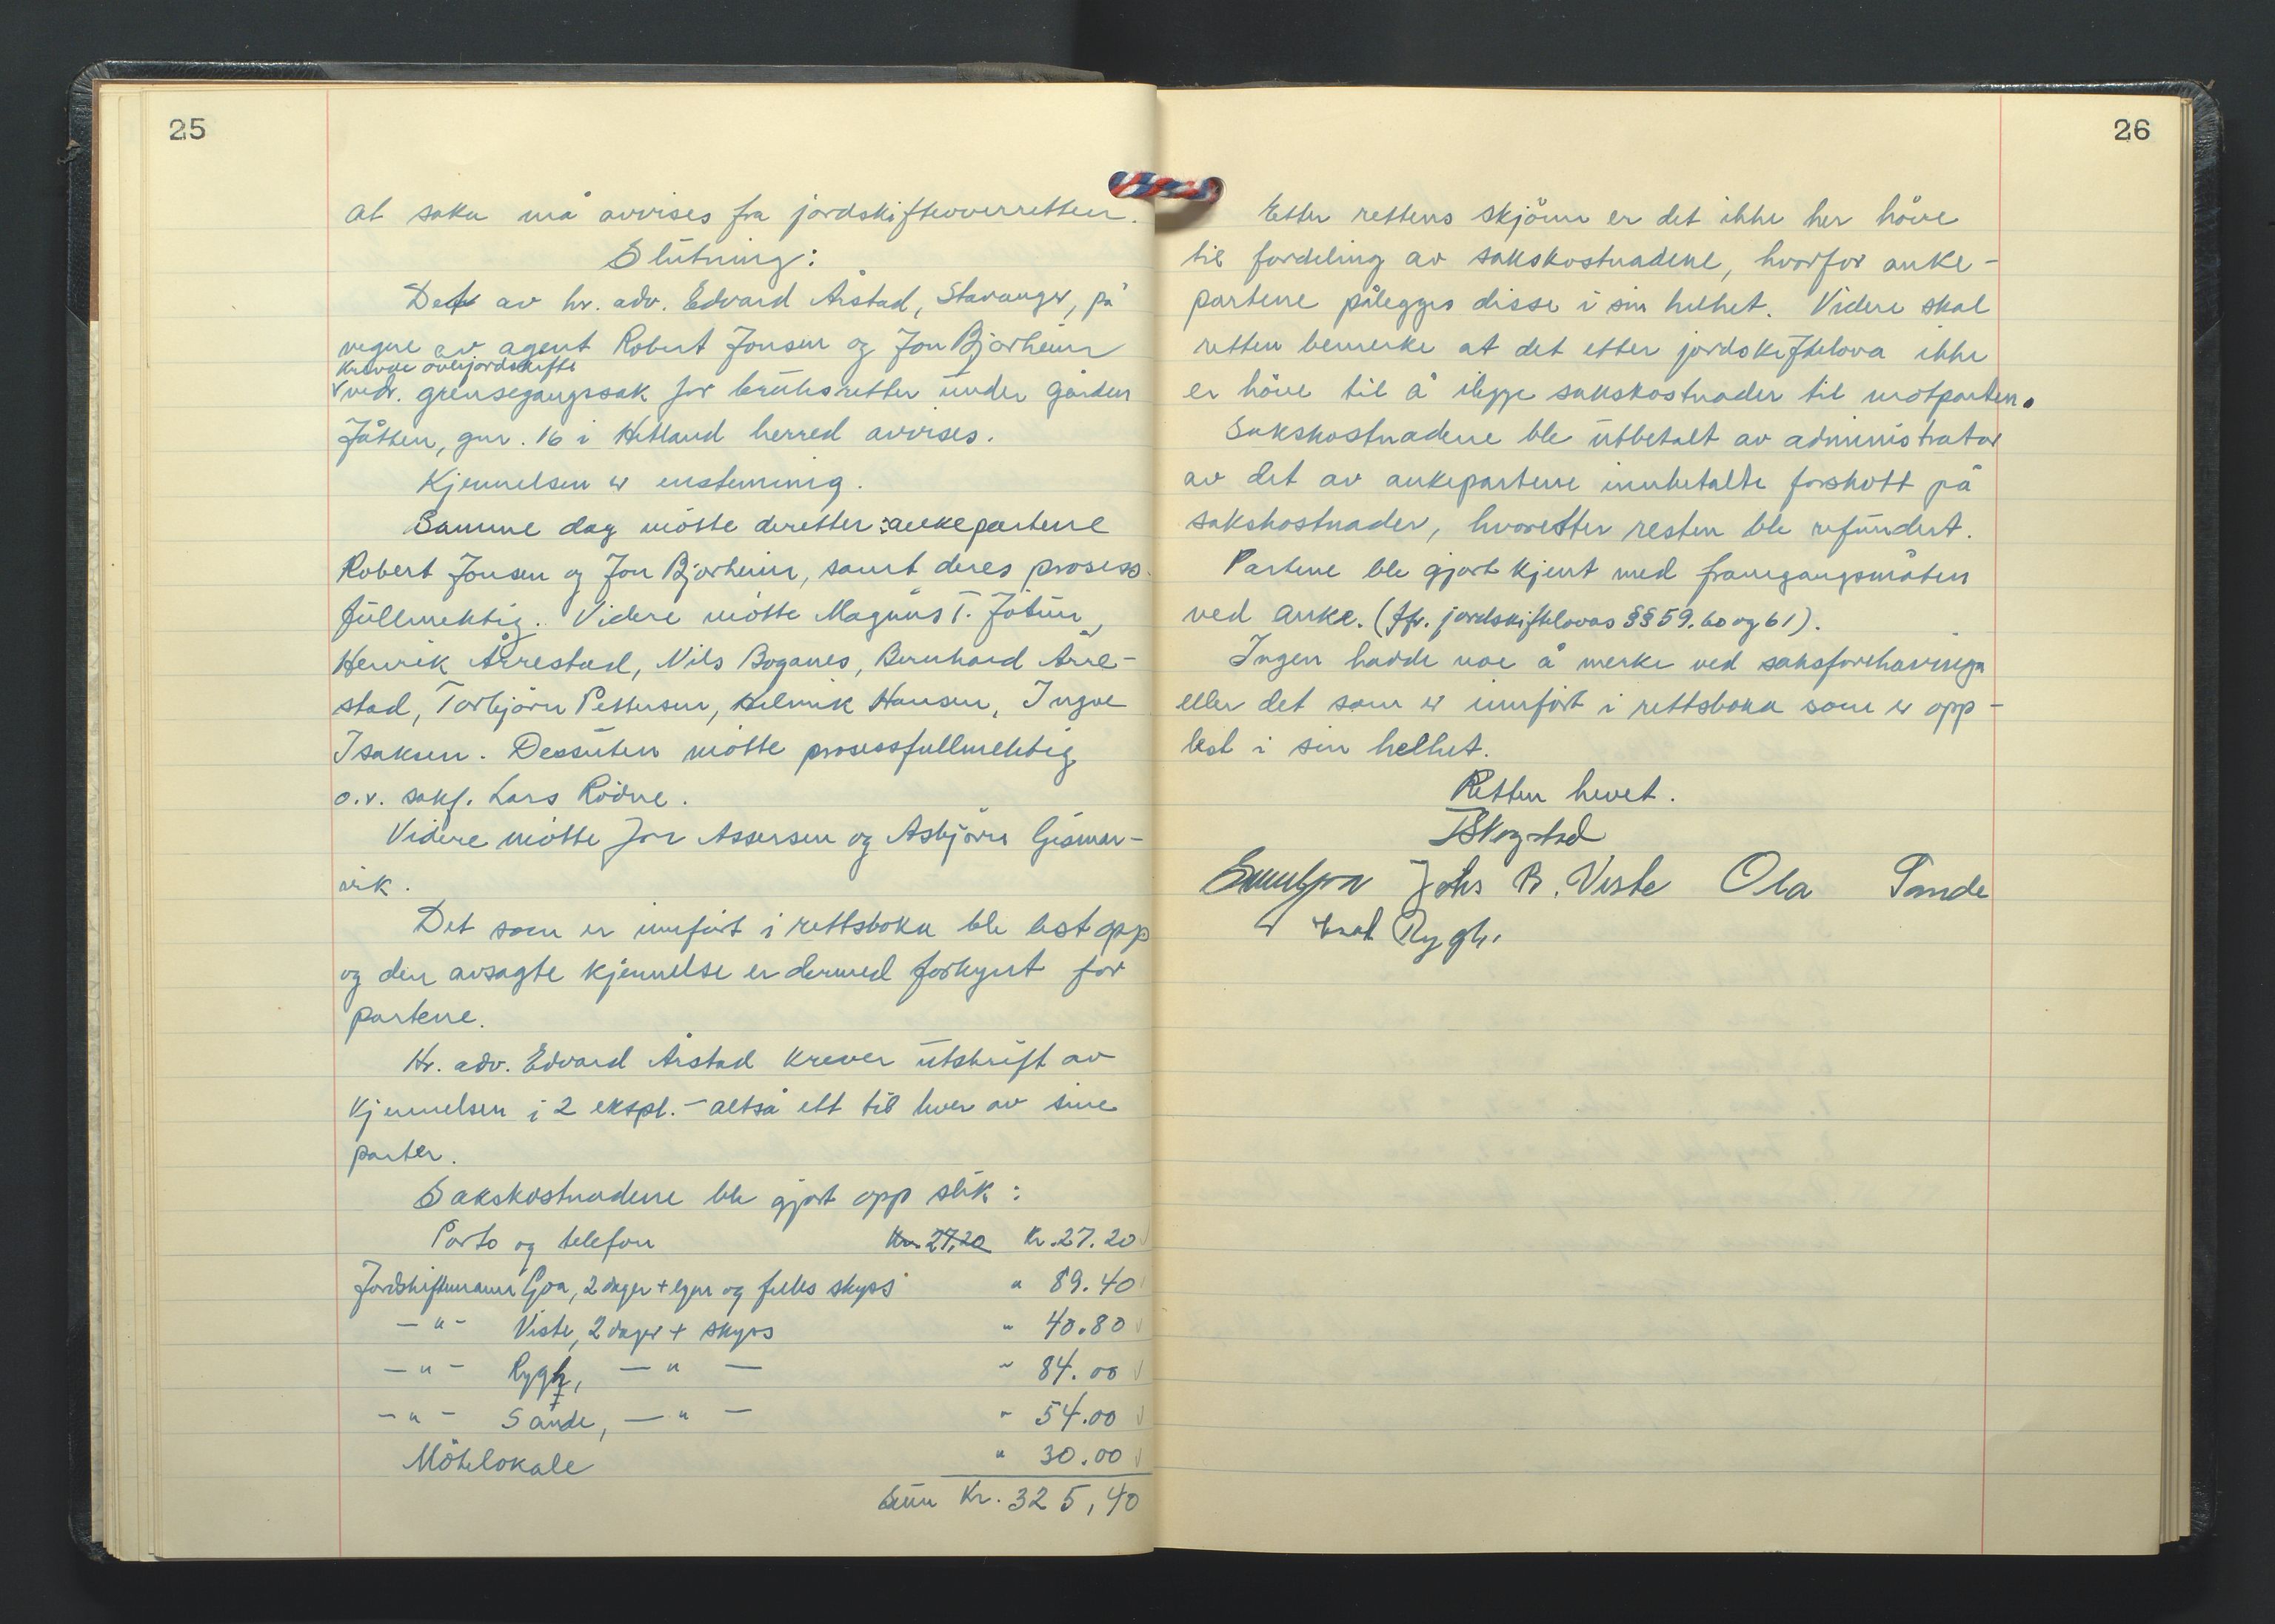 25
at saka må avvises fra jordskifteoverretten.
Slutning:
Det av hr. adv. Edvard Årstad, Stavanger, på
vegne av agent Robert Jonsen og Jon Bjorheim
krevde overjordskifte
vedr. grensegangssak for bruksretter under gården
Jåtten, gnr. 16 i Hetland herred avvises.
Kjennelsen er enstemmig.
Samme dag møtte deretter: ankepartene
Robert Jonsen og Jon Bjorheim, samt deres prosess-
fullmektig. Videre møtte Magnus T. Jåtun,
Henrik Årrestad, Nils Boganes, Bernhard Årre-
stad, Torbjørn Pettersen, Helmik Hansen, Ingve
Isaksen. Dessuten møtte prosessfullmektig
o.r. sakf. Lars Rödne.
Videre møtte Jon Assersen og Asbjørn Gismar-
vik.
Det som er innført i rettsboka ble lest opp
og den avsagte kjennelse er dermed forkynt for
partene.
Hr. adv. Edvard Årstad krever utskrift av
kjennelsen i 2 ekspl. - altså ett til hver av sine
parter.
Sakskostnadene ble gjort opp slik:
Porto og telefon Kr. 27,20 Kr. 27.20
Jordskiftemann Goa, 2 dager + egen og felles skyss " 89.40
- " - Viste, 2 dager + skyss " 40.80
- " - Rygh, - " - " 84.00
- " - Sande, - " - " 54.00
Møtelokale " 30.00
Sum Kr. 325,40
26
Etter rettens skjønn er det ikke her høve
til fordeling av sakskostnadene, hvorfor anke-
partene pålegges disse i sin helhet. Videre skal
retten bemerke at det etter jordskiftelova ikke
er høve til å ilegge sakskostnader til motparten.
Sakskostnadene ble utbetalt av administrator
av det av ankepartene innbetalte forskott på
sakskostnader, hvoretter resten ble refundert.
Partene ble gjort kjent med framgangsmåten
ved anke. (Jfr. jordskiftelovas §§ 59. 60 og 61).
Ingen hadde noe å merke ved saksforehavinga
eller det som er innført i rettsboka som er opp-
lest i sin helhet.
Retten hevet.
Skogstad
Johs B. Viste Ola Sande
Rygh.